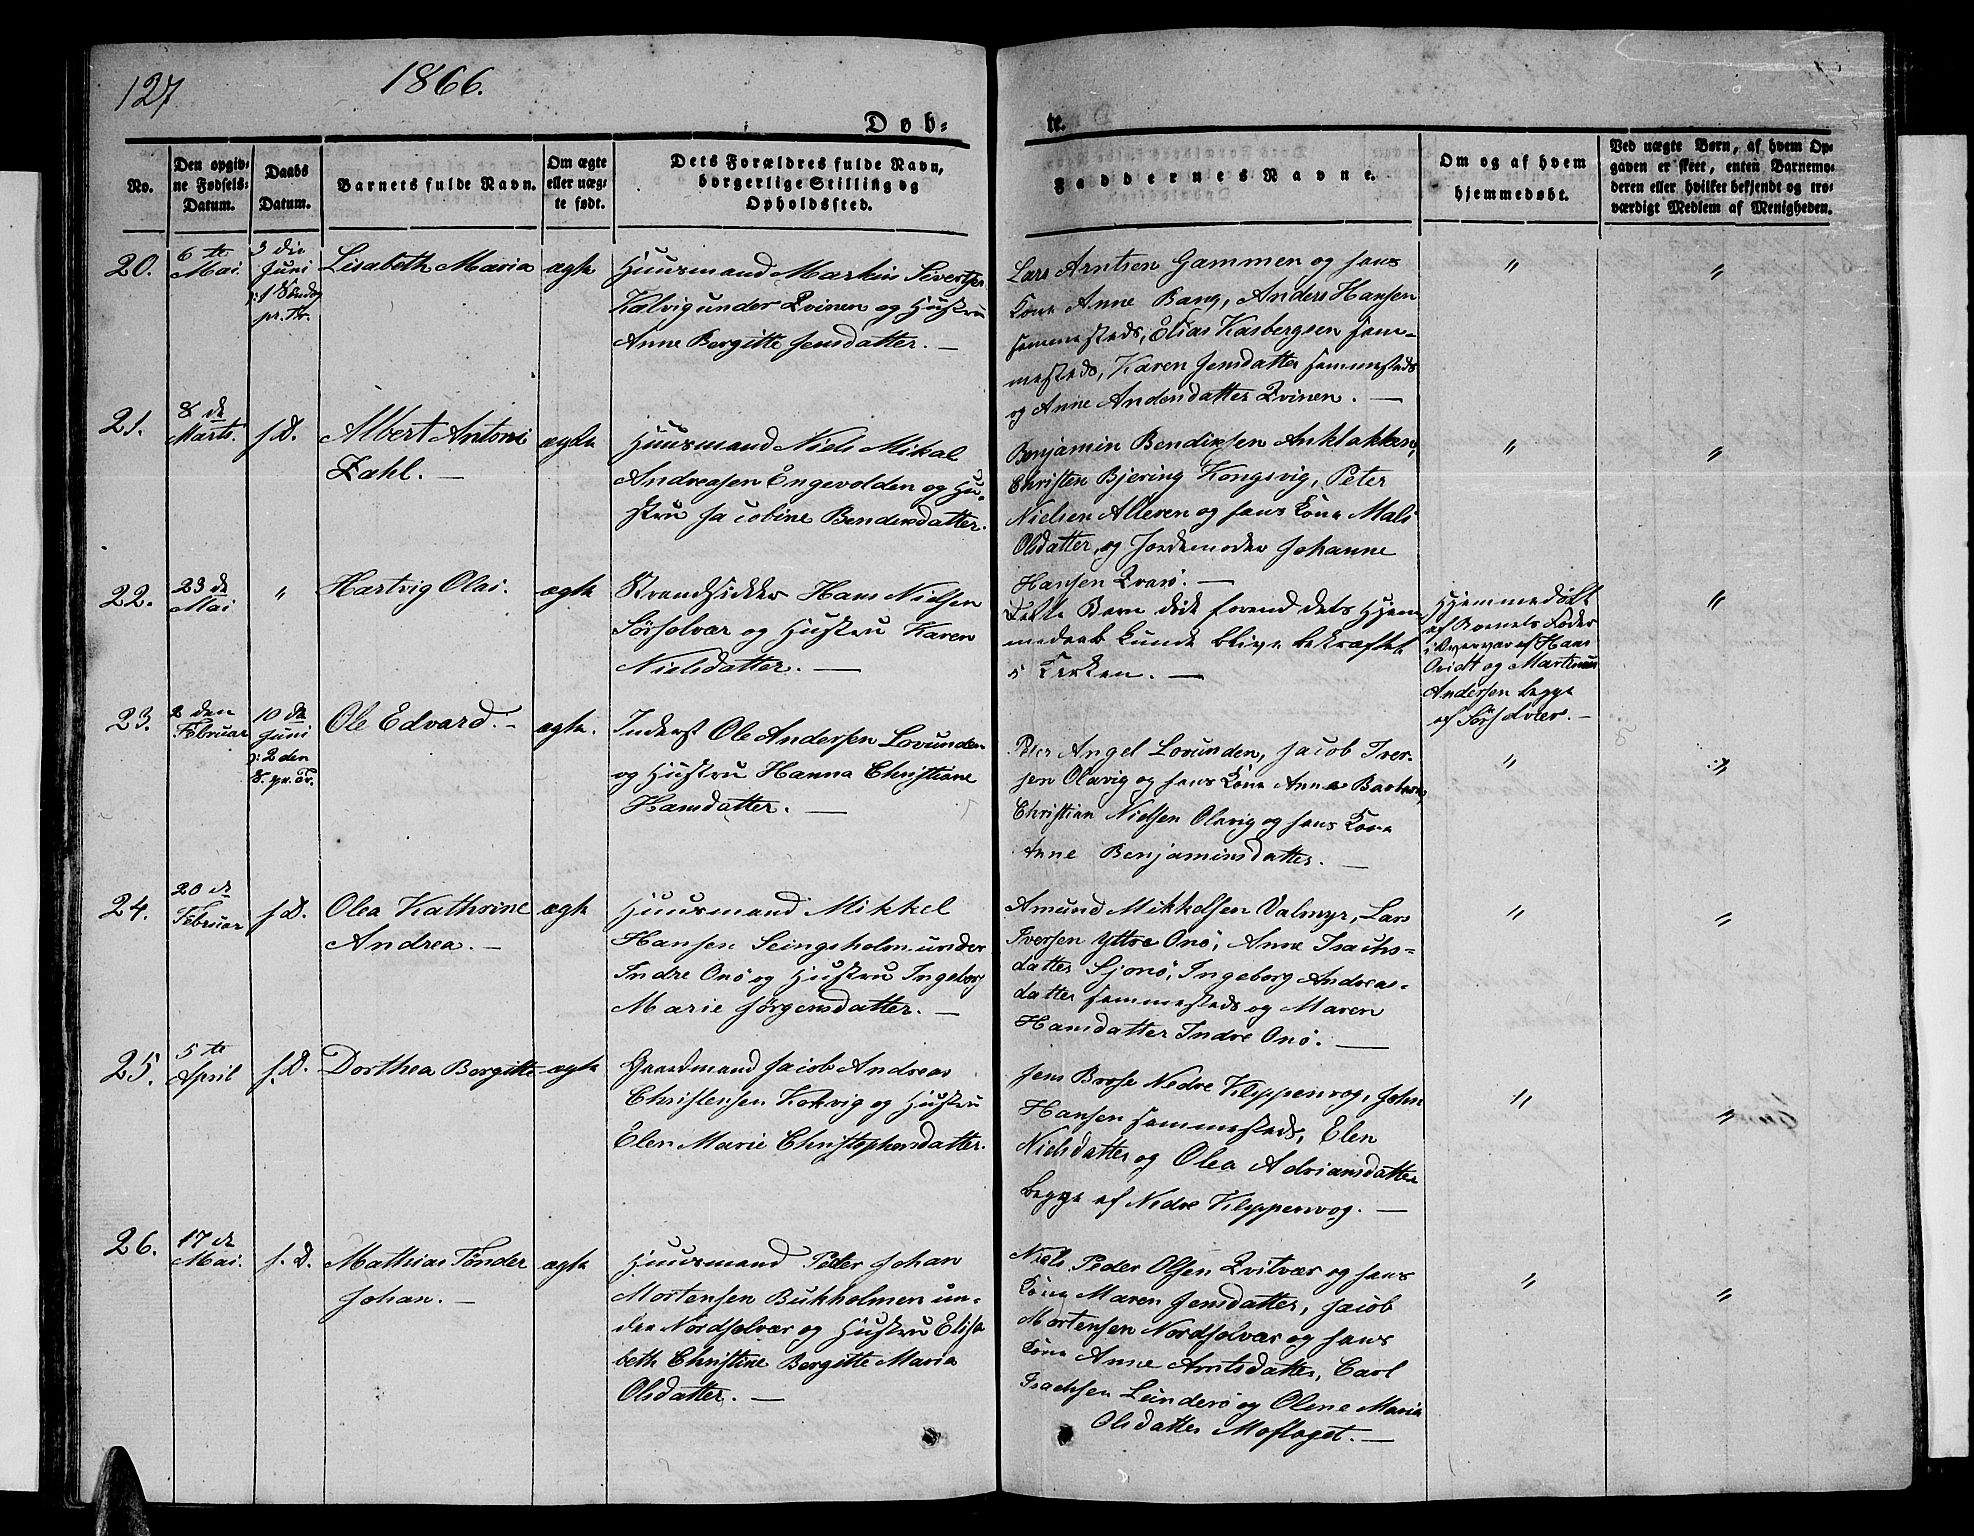 127
1866.
Døb-
te.
No.
Den opgiv-
ne Fødsels-
Datum.
Daabs
Datum.
Barnets fulde Navn.
Om ægte
eller uæg-
te født.
Dets Forældres fulde Navn,
borgerlige Stilling og
Opholdssted.
Faddernes Navne.
Om og af hvem
hjemmedøbt.
Ved uægte Børn, af hvem Op-
gaven er skeet, enten Barnemo-
deren eller hvilket bekjendt og tro-
værdigt Medlem af Menigheden.
20.
6te
Mai.
3die
Juni
1 Søndag
pr. Tr.
Lisabeth Maria
ægte
Huusmand Martin Sivertsen
Kalvig under Qvinen og Hustru
Anne Bergitte Jensdatter. —
Lars Arntsen Gammen og hans
Kone Anne Bang, Anders Hansen
sammesteds, Elias Kasbergsen sam-
mesteds, Karen Jensdatter sammesteds
og Anne Andersdatter Qvinen. —
"
"
21.
8de
Marts.
s. D.
Albert Antoni
Zahl. —
ægte
Huusmand Niels Mikal
Andreasen Engevolden og Hu-
stru Jacobine Bendixsdatter.
Benjamin Bendixsen Anklakken,
Christen Bjering Kongsvig, Peter
Nielsen Alteren og hans Kone Mali
Olsdatter, og Jordemoder Johanne
Hansen Qvarø. —
"
"
22.
23de
Mai
"
Hartvig Olai.
ægte
Strandsidder Hans Nielsen
Sørsolvær og Hustru Karen
Nielsdatter. —
Dette Barn døde forend dets Hjem-
medaab kunde blive bekræftet
i Kirken. —
Hjemmedøbt
af Barnets Fader
i Overvær af Hans
Qvidt og Martinus
Andersen begge
af Sørsolvær. —
"
23.
2den
Februar
10de
Juni
2den
S. pr. Tr.
Ole Edvard. —
ægte.
Inderst Ole Andersen Lovunden
og Hustru Hanna Christiane
Hansdatter. —
Peter Angel Lovunden, Jacob Iver-
sen Olavig og hans Kone Anne
Christian Nielsen Olavig og hans Kone
Anne Benjaminsdatter. —
"
"
24.
20de
Februar
s. D.
Olea Kathrine
Andrea. —
ægte
Huusmand Mikkel
Hansen Seingsholm under
Indre Onø og Hustru Ingeborg
Marie Jørgensdatter. —
Amund Mikkelsen Valmyr, Lars
Iversen Yttre Onø, Anne Isachs-
datter Sjonø, Ingeborg Andreas-
datter sammesteds og Maren
Hansdatter Indre Onø. —
"
"
25.
5te
April
s. D.
Dorthea Bergitte
ægte
Gaardmand Jacob Andreas
Christensen Kokvig og Hustru
Elen Marie Christophersdatter.
Jens Brose Nedre Kleppenvog, John
Hansen sammesteds, Elen
Nielsdatter og Olea Adriansdatter
begge af Nedre Kleppenvog. —
"
"
26.
17de
Mai.
s. D.
Mathias Tønder
Johan. —
ægte
Huusmand Peter Johan
Mortensen Bukholmen un-
der Nordsolvær og Hustru Elisa
beth Christine Bergitte Maria
Olsdatter. —
Niels Peder Olsen Qvitvær og hans
Kone Maren Jensdatter, Jacob
Mortensen Nordsolvær og hans
Kone Anne Arntsdatter, Carl
Isachsen Leinderø og Olene Maria
Olsdatter Moflaget. —
"
"